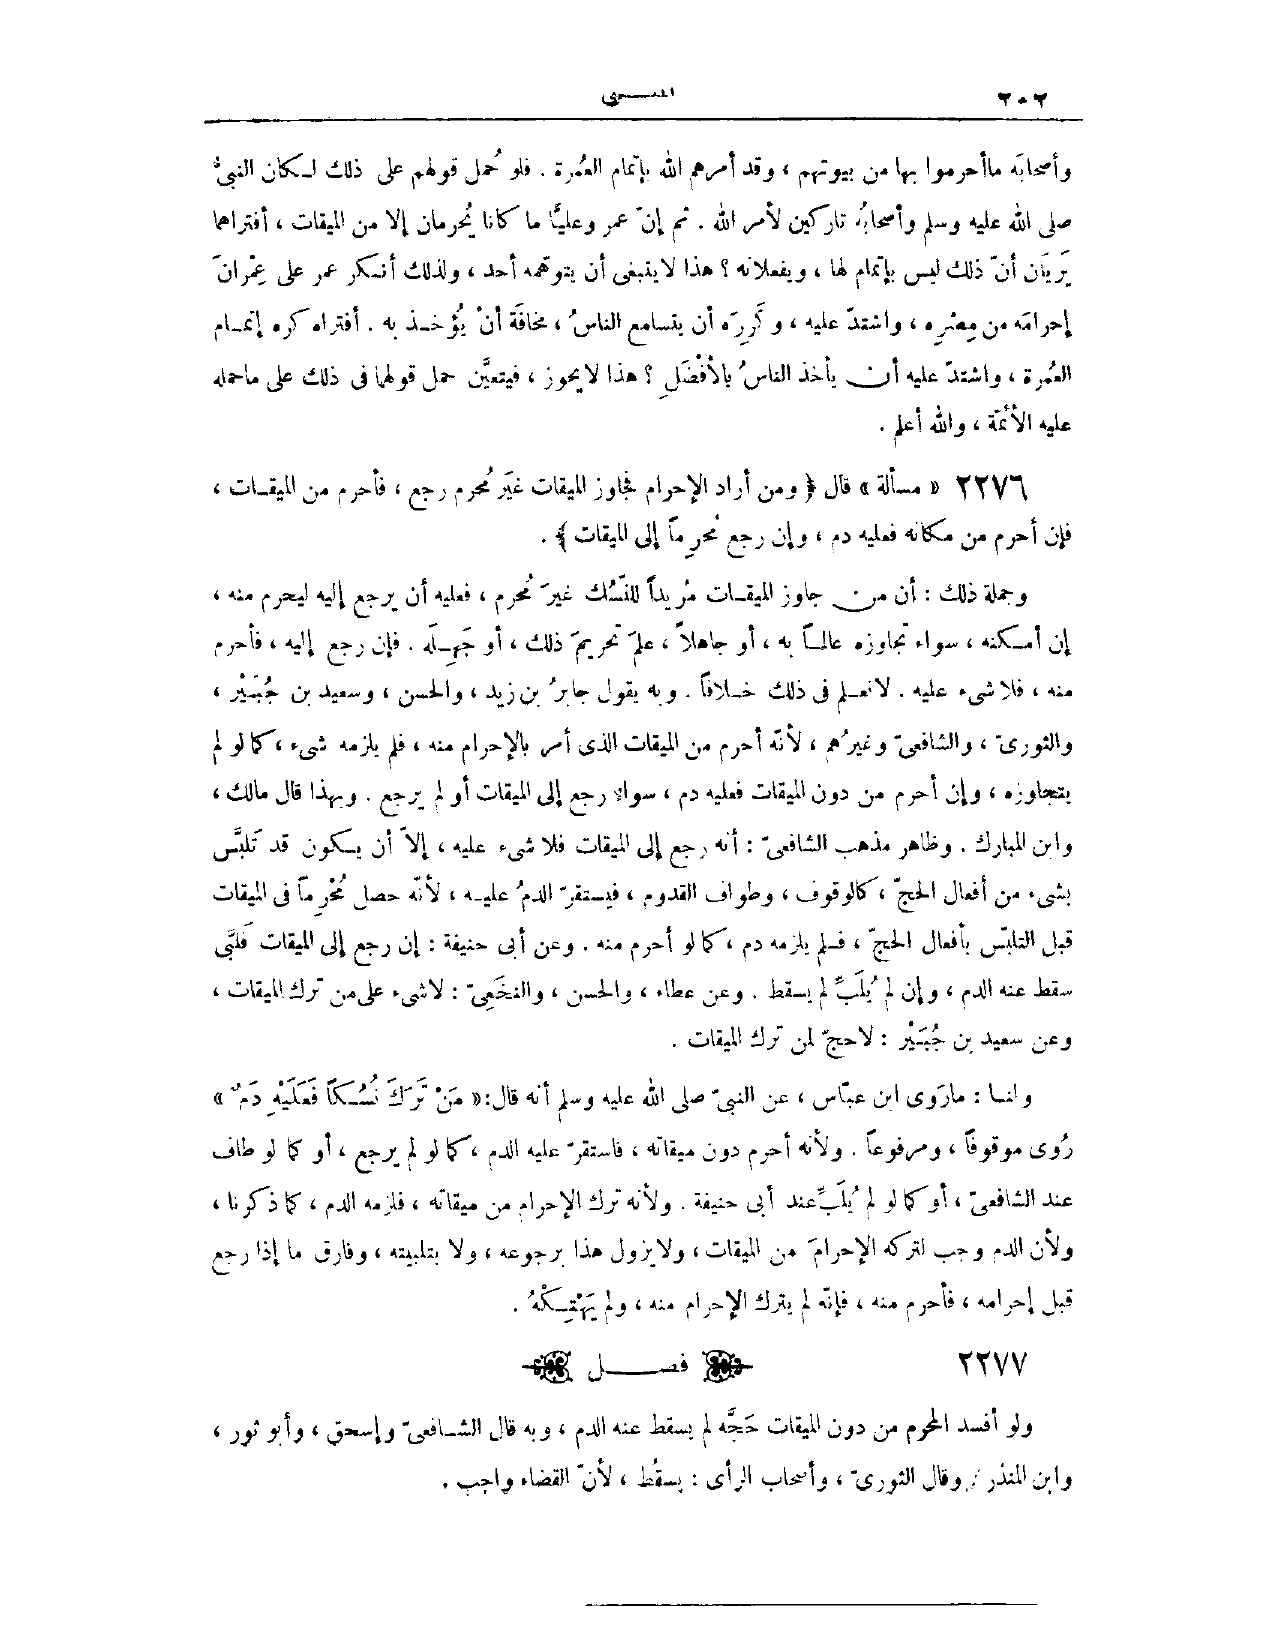 ٢٠٢ المغنى
وأصحابَه ماأحرموا بها من بيوتهم ، وقد أمرهم الله بإتمام العُمرة . فلو حُمل قولهم على ذلك لـكان النبىُّ
صلى الله عليه وسلم وأصحابُه تاركين لأمر الله . ثم إنّ عمر وعليًّا ما كانا يُحرمان إلا من الميقات ، أفتراهما
يَريَان أنّ ذلك ليس بإتمام لها ، ويفعلانه ؟ هذا لاينبغى أن يتوهّمه أحد ، ولذلك أنـكر عمر على عِمْرانَ
إحرامَه من مِصْرِه ، واشتدّ عليه ، وكَرِرَه أن يتسامع الناسُ ، مخافَةَ أنْ يُؤخـذ به . أفتراه كره إتمـام
العُمرة ، واشتدّ عليه أن يأخذ الناسُ بالأفْضَلِ ؟ هذا لايجوز ، فيتعيَّن حمل قولهما فى ذلك على ماحمله
عليه الأئمّة ، والله أعلم .
٢٢٧٦ « مسألة » قال { ومن أراد الإحرام فجاوز الميقات غيَر مُحرم رجع ، فأحرم من الميقـات ،
فإن أحرم من مكانه فعليه دم ، وإن رجع مُحرِماً إلى الميقات } .
وجملة ذلك : أن من جاوز الميقـات مُريداً للنّسُك غيرَ مُحرم ، فعليه أن يرجع إليه ليحرم منه ،
إن أمـكنه ، سواء تجاوزه عالمـاً به ، أو جاهلاً ، علمَ تحريمَ ذلك ، أو جَهِـلَه . فإن رجع إليه ، فأحرم
منه ، فلا شىء عليه . لانعـلم فى ذلك خـلافاً . وبه يقول جابرُ بن زيد ، والحسن ، وسعيد بن جُبَيْر ،
والثورىّ ، والشافعىّ وغيرُهم ، لأنّه أحرم من الميقات الذى أمر بالإحرام منه ، فلم يلزمه شىء ، كما لو لم
يتجاوزه ، وإن أحرم من دون الميقات فعليه دم ، سواء رجع إلى الميقات أو لم يرجع . وبهذا قال مالك ،
وابن المبارك . وظاهر مذهب الشافعىّ : أنه رجع إلى الميقات فلا شىء عليه ، إلاّ أن يـكون قد تَلبَّس
بشىء من أفعال الحجّ ، كالوقوف ، وطواف القدوم ، فيستقرّ الدمُ عليـه ، لأنّه حصل مُحْرِماً فى الميقات
قبل التلبّس بأفعال الحجّ ، فـلم يلزمه دم ، كما لو أحرم منه . وعن أبى حنيفة : إن رجع إلى الميقات فَلَبَّى
سقط عنه الدم ، وإن لم يُلَبِّ لم يسقط . وعن عطاء ، والحسن ، والنخَعىّ : لاشىء على من ترك الميقات ،
وعن سعيد بن جُبَيْر : لاحجّ لمن ترك الميقات .
ولنـا : مارَوى ابن عبّاس ، عن النبىّ صلى الله عليه وسلم أنه قال: « مَنْ تَرَكَ نُسُـكاً فَعَلَيْهِ دَمٌ »
رُوى موقوفاً ، ومرفوعاً . ولأنه أحرم دون ميقاته ، فاستقرّ عليه الدم ، كما لو لم يرجع ، أو كما لو طاف
عند الشافعىّ ، أو كما لو لم يُلَبِّ عند أبى حنيفة . ولأنه ترك الإحرام من ميقاته ، فلزمه الدم ، كما ذكرنا ،
ولأن الدم وجب لتركه الإحرامَ من الميقات ، ولايزول هذا برجوعه ، ولا بتلبيته ، وفارق ما إذا رجع
قبل إحرامه ، فأحرم منه ، فإنّه لم يترك الإحرام منه ، ولم يَهْتِـكْهُ .
٢٢٧٧ فصـــل
ولو أفسد المحرم من دون الميقات حَجَّه لم يسقط عنه الدم ، وبه قال الشـافعىّ وإسحق ، وأبو ثور ،
وابن المنذر / وقال الثورىّ ، وأصحاب الرأى : يسقُط ، لأنّ القضاء واجب .